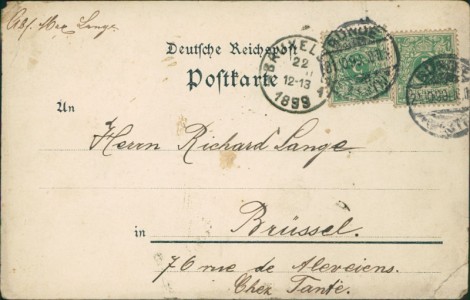 Abs. Max Lange.
Deutsche Reichspost
Postkarte
BRUXELLES
22
12-13
1899
BÜNDE
An
Herrn Richard Lange.
in Brüssel.
76 rue de
Chez Tante.